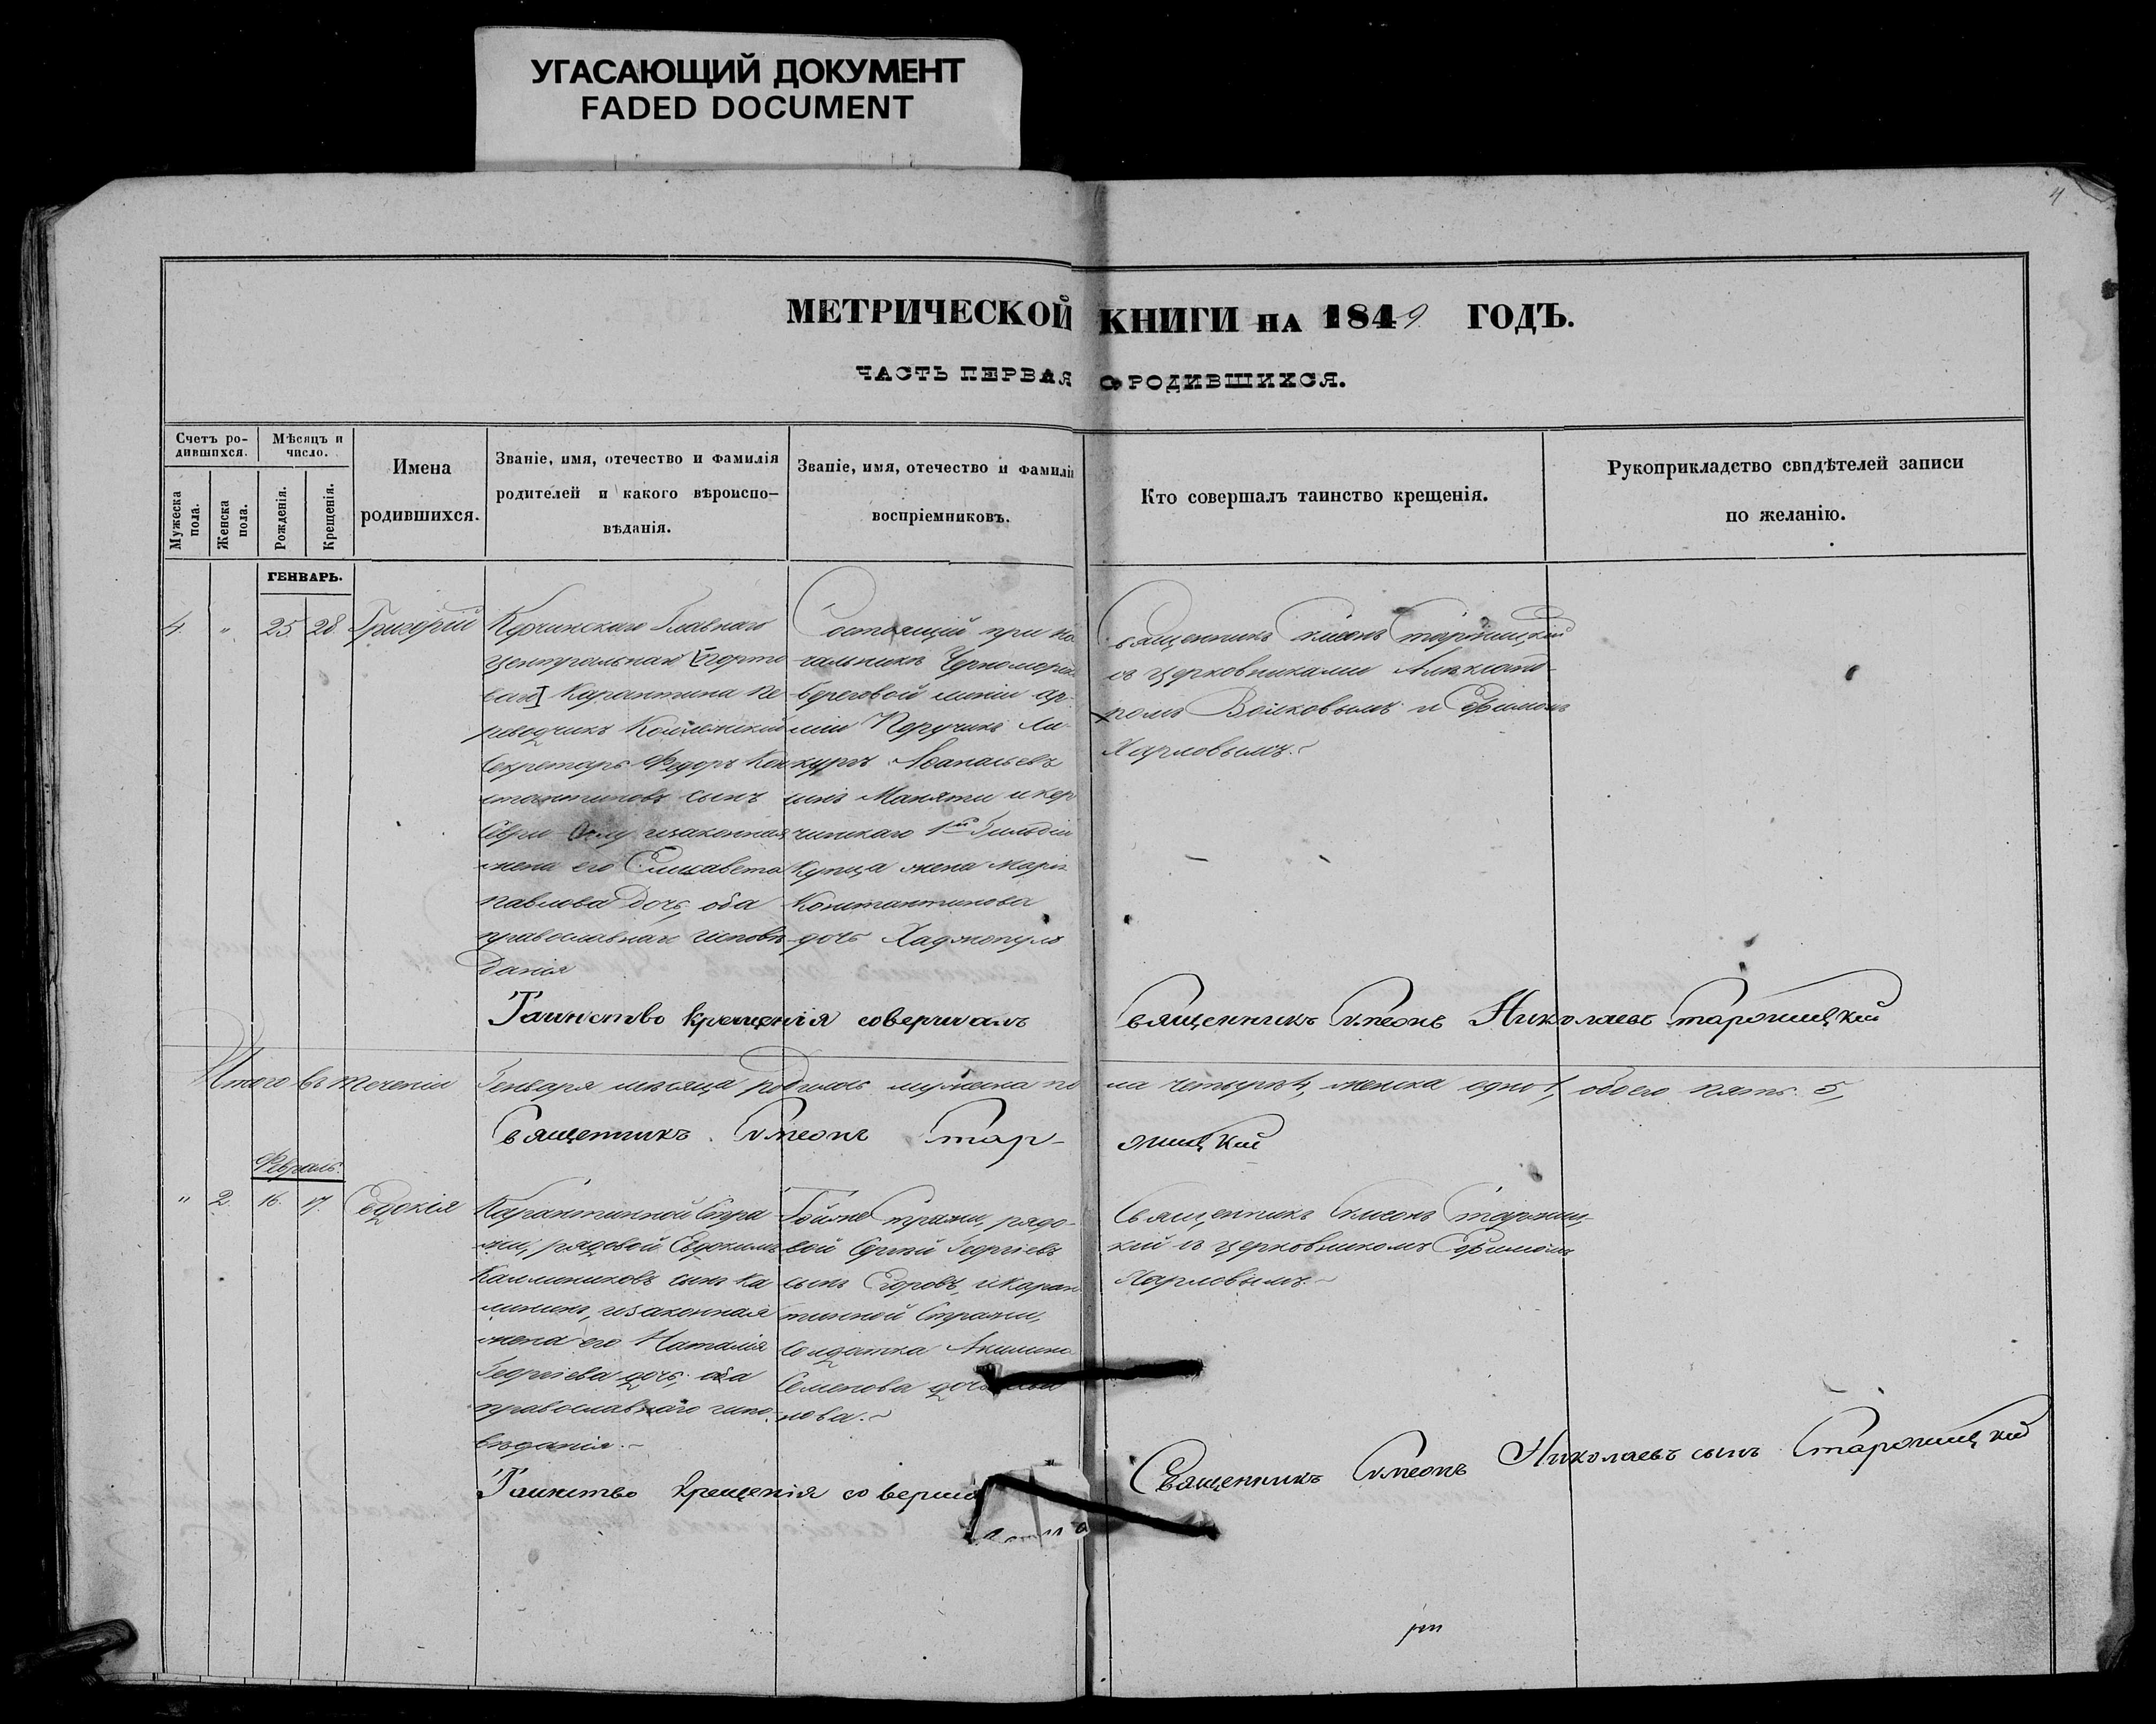 УГАСАЮЩИЙ ДОКУМЕНТ
FADED DOCUMENT
4
МЕТРИЧЕСКОЙ КНИГИ НА 1849 ГОДЪ.
ЧАСТЬ ПЕРВАЯ О РОДИВШИХСЯ.
Счетъ ро-
дившихся.
Мужеска
пола.
Женска
пола.
Мѣсяцъ и
число.
Рожденія.
Крещенія.
Имена
родившихся.
Званіе, имя, отечество и фамилія
родителей и какого вѣроиспо-
вѣданія.
Званіе, имя, отечество и фамилія
воспріемниковъ.
Кто совершалъ таинство крещенія.
Рукоприкладство свидѣтелей записи
по желанію.
ГЕНВАРЬ.
4. " 25 28. Григорій
Главнаго
центральнаго
Карантина Пе-
реводчикъ Коллежскій
Секретарь Федоръ Кон
стантиновъ сынъ
изаконная
жена его Елисавета
Павлова дочь, оба
православнаго исповѣ
данія
Состоящій при На
чальникѣ Черноморск
береговой линіи ар-
міи Поручикъ Ли-
кургъ Аѳанасьевъ
сынъ и кер
чинскаго 1й Гильдіи
Купца жена Марія
Константинова
дочь Хаджопуло
Священникъ Симеонъ Старжицкій
съ церковниками
Волковымъ и Ефимомъ
Карповымъ.~
Таинство крещенія совершалъ Священникъ Симеонъ Николаевъ Старжицкій
Итого въ теченіи Генваря мѣсяца родилось мужеска по ла четыре 4, женска одно 1, обоего пять. 5,
Священникъ Симеонъ Стар- жицкій
Февраль.
" 2 16. 17. Евдокія
Карантинной Стра
жи, рядовой Евдокимъ
сынъ Ка
лининъ, изаконная
жена его Наталія
Георгіева дочь, оба
православнаго испо-
вѣданія.~
Тойже Стражи, рядо-
вой Сергій Георгіевъ
сынъ Егоровъ, и Каран
тинной Стражи,
Солдатка Акилина
Семенова дочь
нова.~
Священникъ Симеонъ Старжиц-
кій съ церковникомъ Ефимомъ
Карповымъ.~
Таинство крещенія соверша Священникъ Симеонъ Николаевъ сынъ Старжицкій